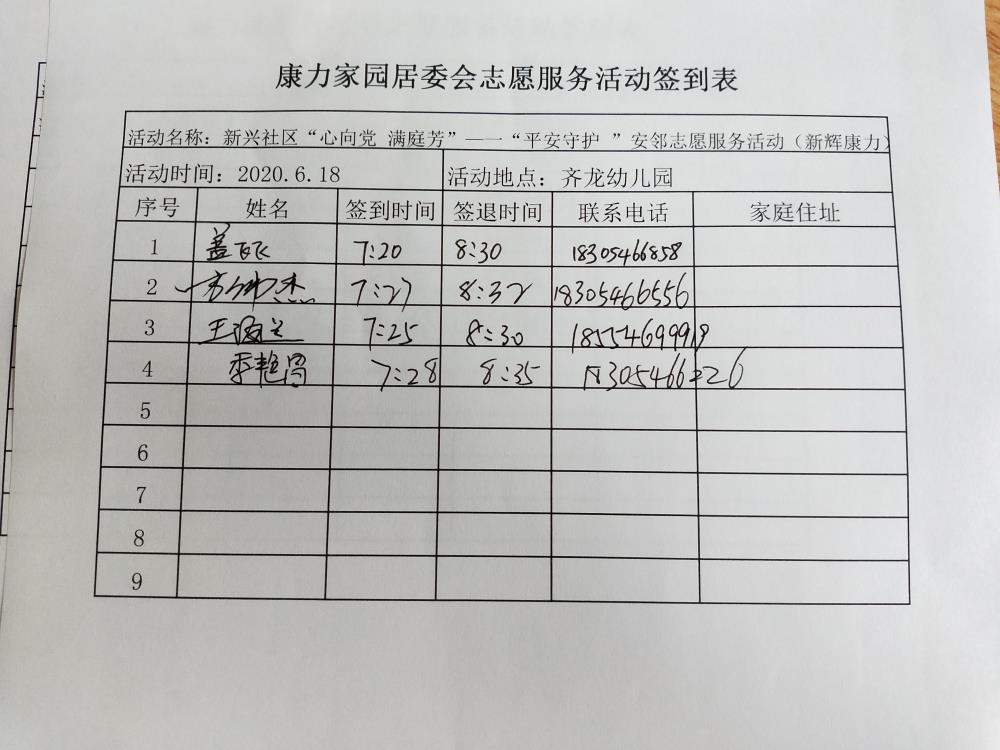 康力家园居委会志愿服务活动签到表
活动名称：新兴社区“心向党 满庭芳”—一“平安守护 ”安邻志愿服务活动（新辉康力）
活动时间：2020.6.18 活动地点：齐龙幼儿园
序号 姓名 签到时间 签退时间 联系电话 家庭住址
1 盖 7:20 8:30 18305466858
2 杰 7:27 8:32 18305466556
3 王 7:25 8:30 18554699919
4 季艳 7:28 8:35 305466226
5
6
7
8
9